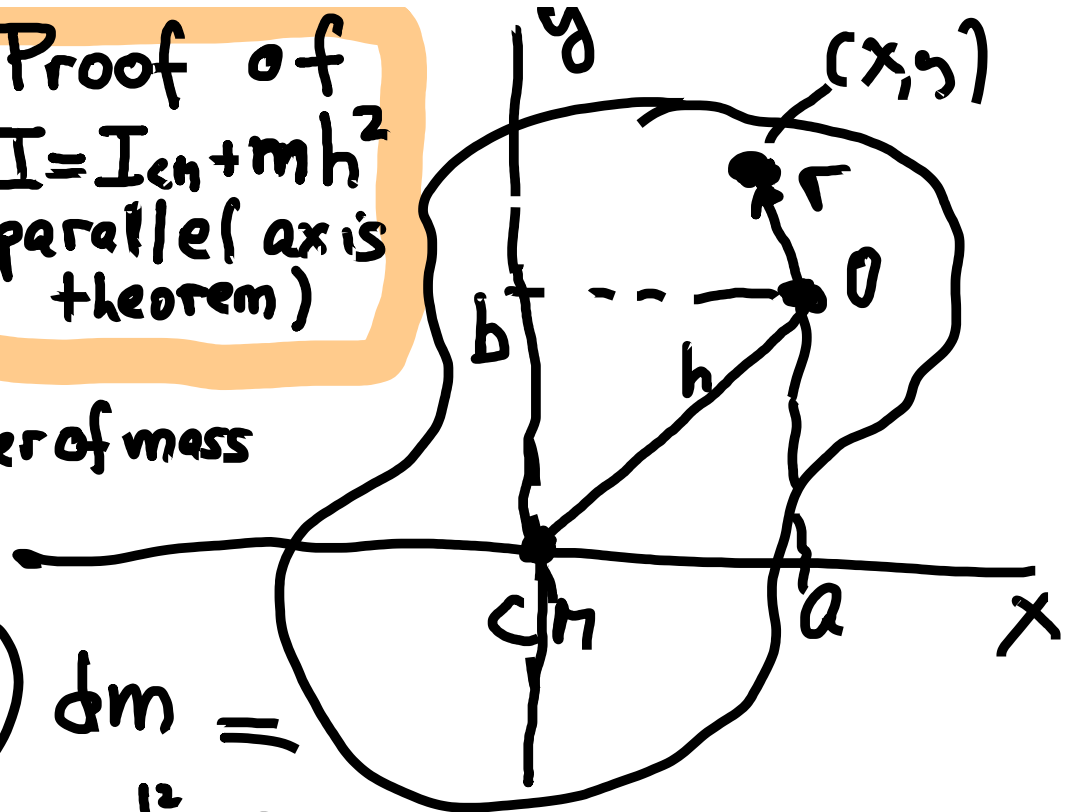 Proof of
I = Icm + mh²
parallel axis
theorem)
er of mass
dm =
y
(x,y)
r
O
b
h
cm
a
x